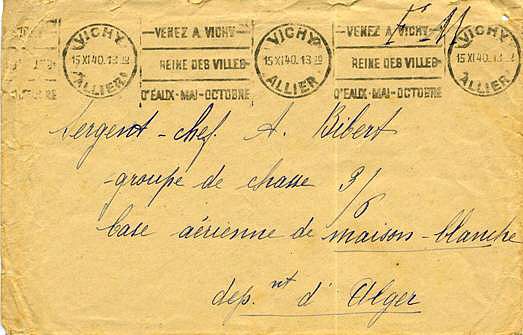 F. M
VICHY 15 XI 40. 13 ALLIER
VENEZ A VICHY
REINE DES VILLES
D'EAUX-MAI-OCTOBRE
VICHY 15 XI 40. 13 ALLIER
VENEZ A VICHY
REINE DES VILLES
D'EAUX-MAI-OCTOBRE
VICHY 15 XI 40. 13 ALLIER
Sergent-chef. A. Bibert
groupe de chasse 3/6
base aérienne de maison-blanche
dep.nt d' Alger